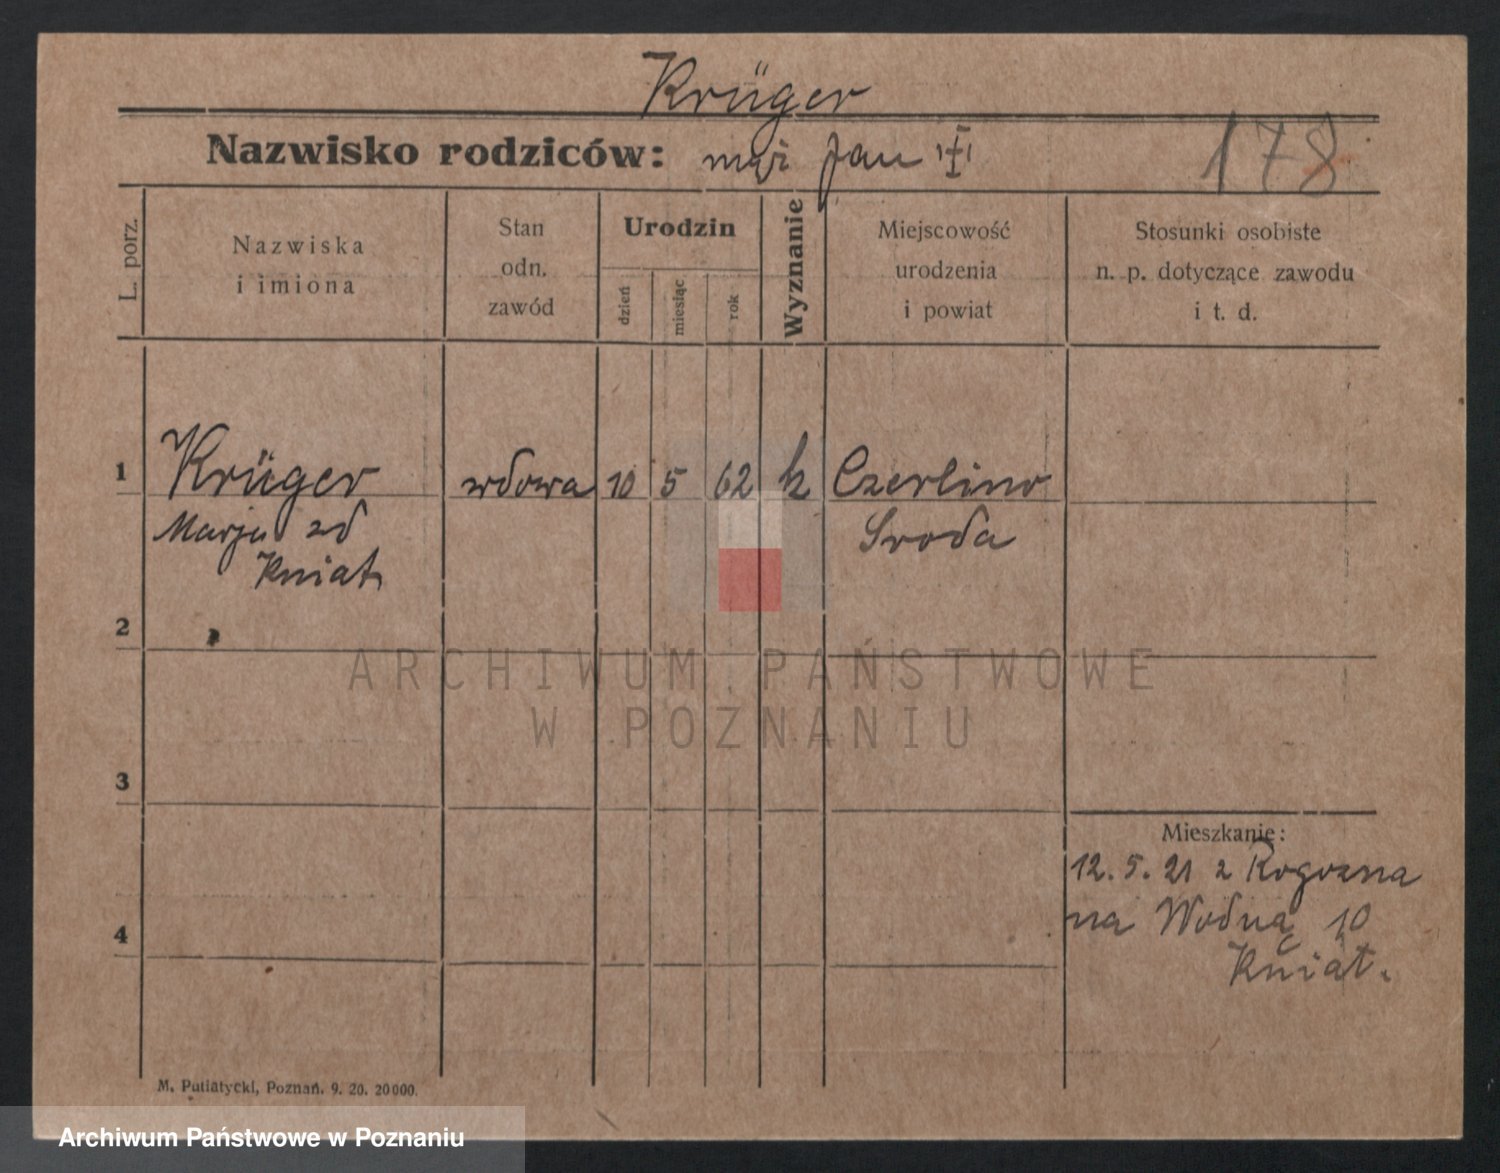 Krüger
Nazwisko rodziców: mąż Jan
178
L. porz.
Nazwiska
i imiona
Stan
odn.
zawód
Urodzin
dzień
miesiąc
rok
Wyznanie
Miejscowość
urodzenia
i powiat
Stosunki osobiste
n. p. dotyczące zawodu
i t. d.
1 Krüger wdowa 10 5 62 k Czerlino
Marja zd Sroda
Kniat
2
ARCHIWUM PAŃSTWOWE
W POZNANIU
3
Mieszkanie:
12. 5. 21 z Rogozna
na Wodną 10
4
Kniat.
M. Putiatycki, Poznań. 9. 20. 20000.
Archiwum Państwowe w Poznaniu